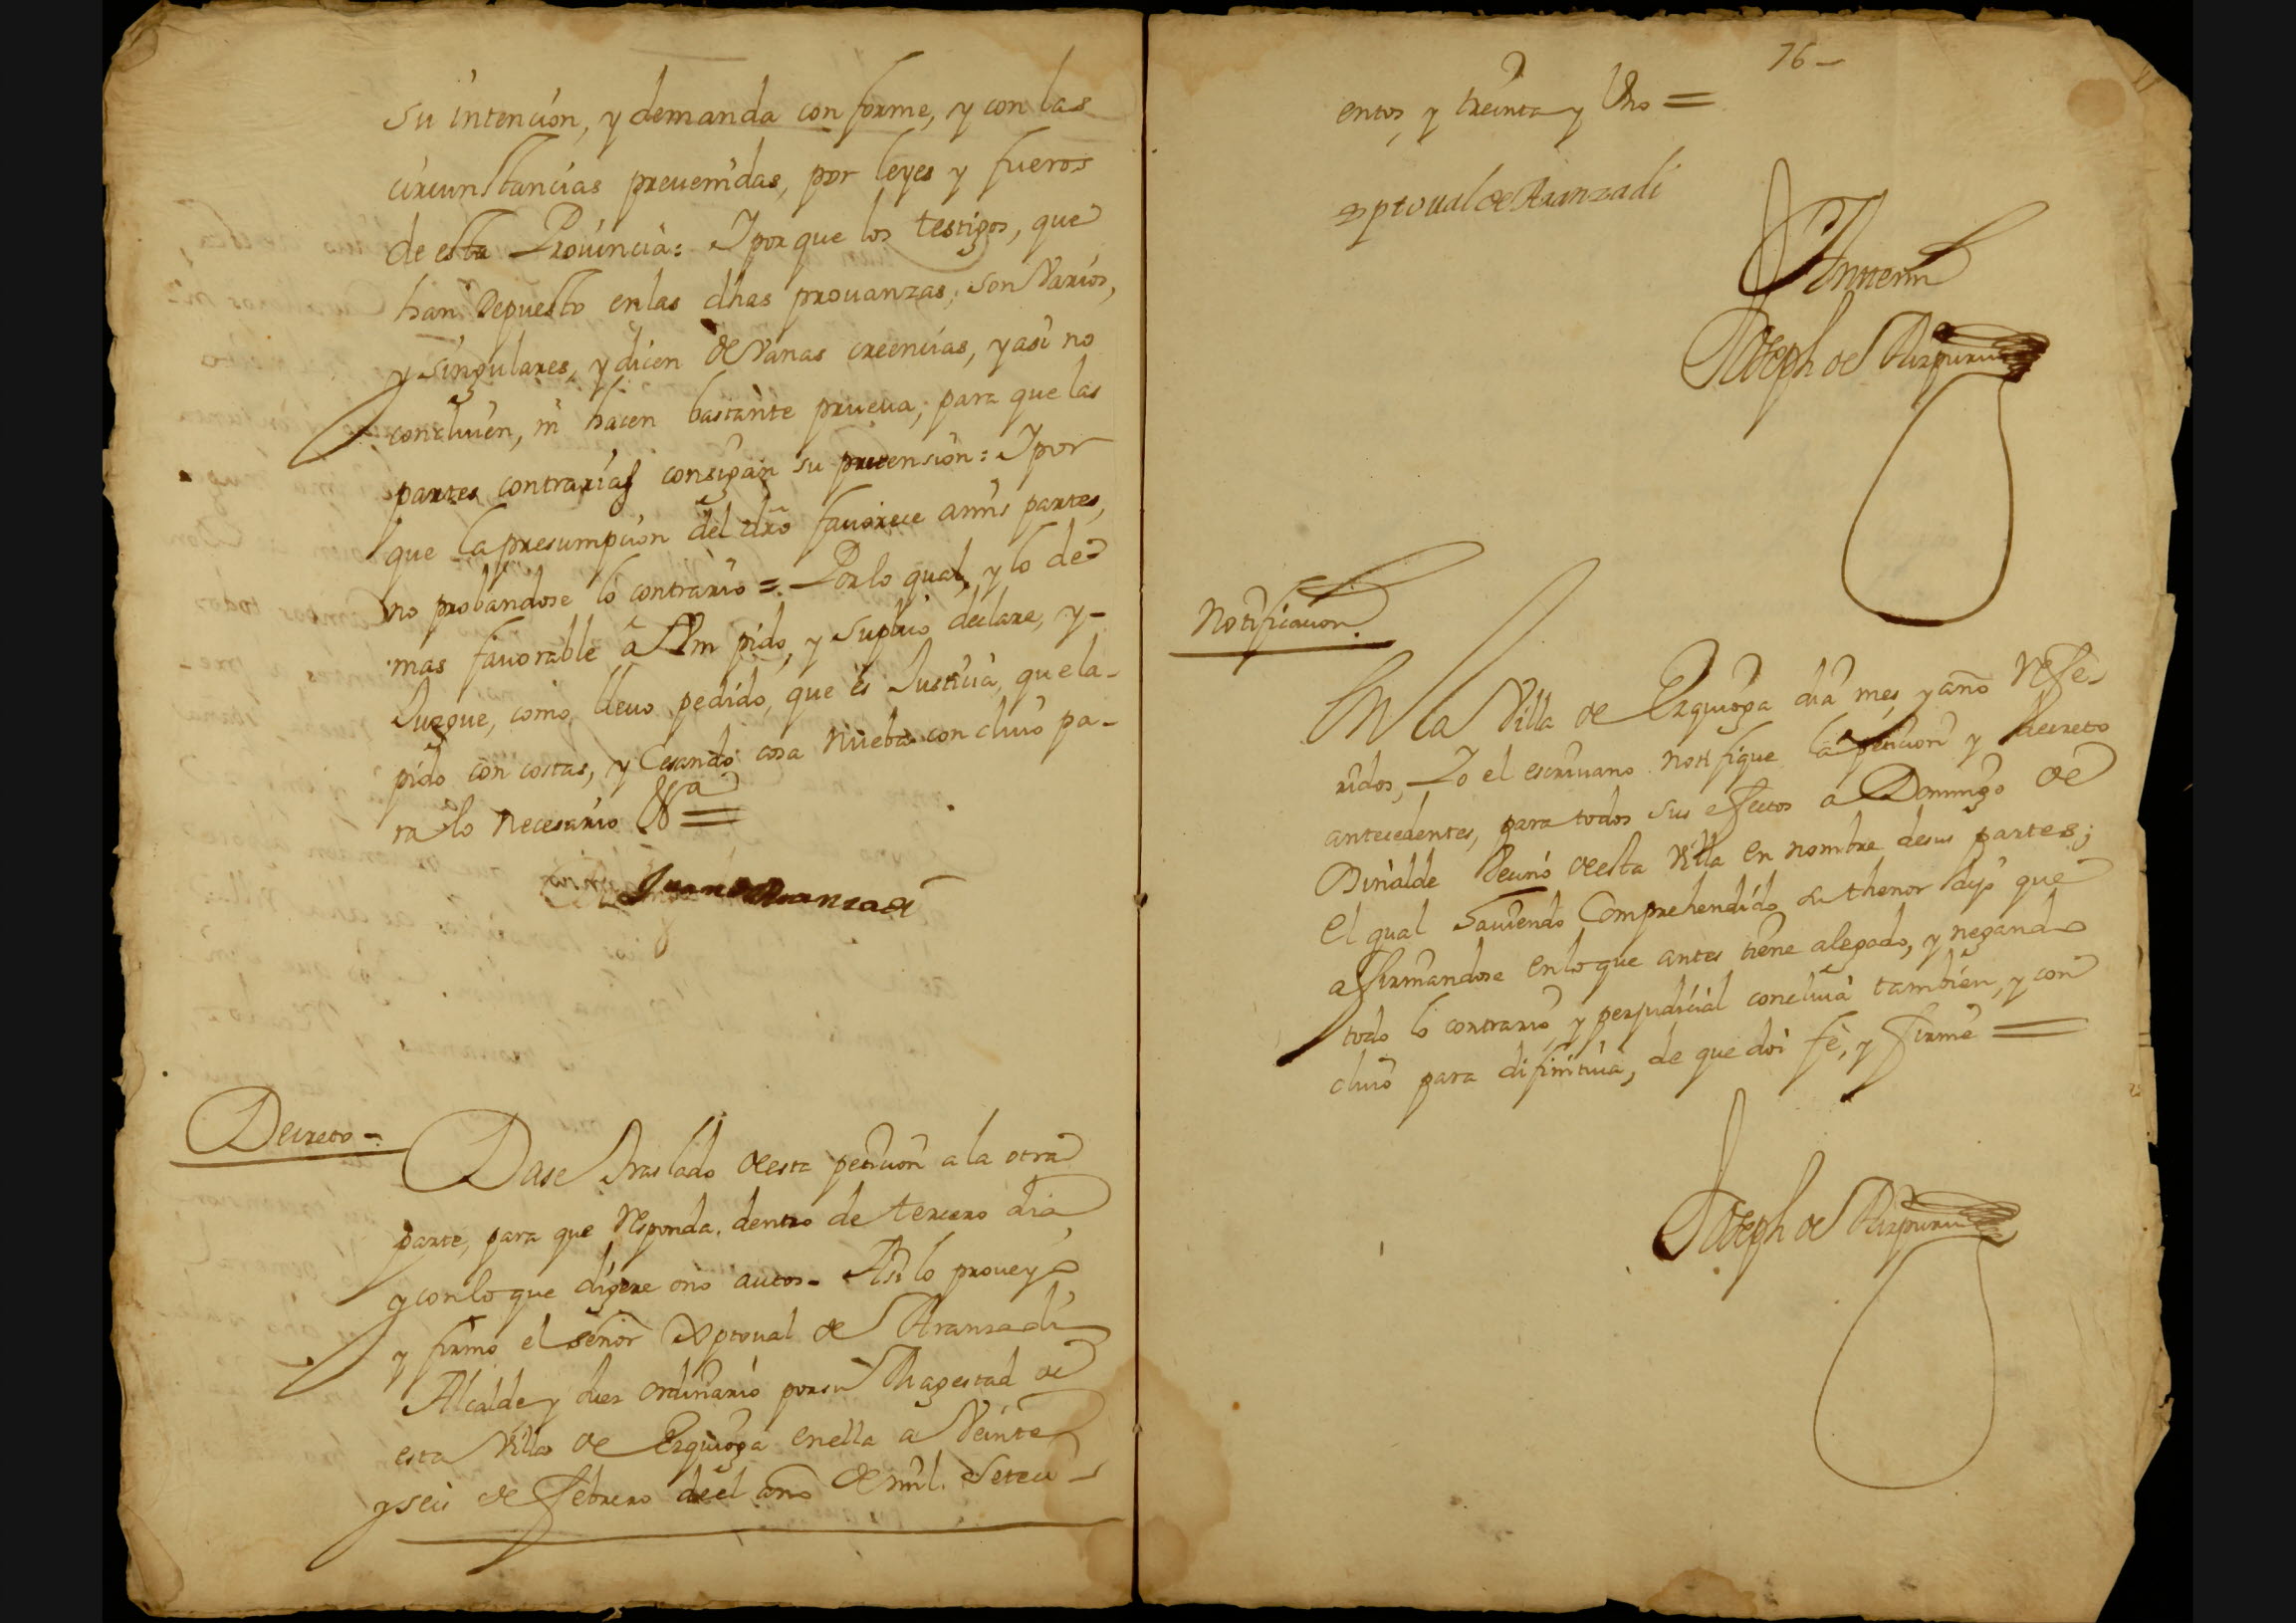 su intencion, y demanda conforme, y con las
circunstancias preuenidas, por leyes y fueros
de esta Prouincia: Y porque los testigos, que
han Depuesto en las dhas prouanzas, son Varios,
y singulares, y dicen de Vanas creencias, y asi no
concluien, ni hacen bastante prueua, para que las
partes contrarias consigan su pretension: Y por
que la presumpcion del dro fauorece a mis partes,
no probandose lo contrario = Por lo qual, y lo de
mas fauorable â Vm pido, y suplico declare, y
Juzgue, como lleuo pedido, que es Justicia, que la
pido con costas, y Cesando cosa nueba concluio pa-
ra lo necesario &a =
Juan de Aranzadi
Decreto -
Dase traslado de esta peticion a la otra
parte, para que Responda, dentro de tercero dia
y con lo que digere o no autos - Asi lo proueyo
y firmo el señor Xptoual de Aranzadi
Alcalde y Juez ordinario por su Magestad de
esta Villa de Ezquioga en ella a Veinte
y seis de febrero de el año de mil. Seteci-
76 -
entos, y treinta y Uno =
Xptoual de Aranzadi
Ante mi
Joseph de Aizpuru
Notificacion.
En la Villa de Ezquioga dia mes, y año Refe-
ridos, Yo el escriuano notifique la peticion y decreto
antecedentes, para todos sus efectos a Domingo de
Birialde Vecino de esta Villa en nombre de sus partes;
el qual hauiendo Comprehendido su thenor dijo que
afirmandose en lo que antes tiene alegado, y negando
todo lo contrario, y perjudicial concluia tambien, y con
cluio para difinitiua, de que doi fè, y firmè =
Joseph de Aizpuru